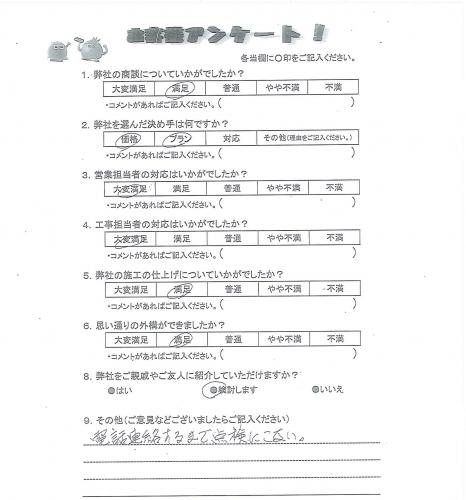 お客様アンケート！
各当欄に〇印をご記入ください。
1. 弊社の商談についていかがでしたか？
大変満足 満足 普通 やや不満 不満
・コメントがあればご記入ください。( )
2. 弊社を選んだ決め手は何ですか？
価格 プラン 対応 その他(理由をご記入ください。)
・コメントがあればご記入ください。( )
3. 営業担当者の対応はいかがでしたか？
大変満足 満足 普通 やや不満 不満
・コメントがあればご記入ください。( )
4. 工事担当者の対応はいかがでしたか？
大変満足 満足 普通 やや不満 不満
・コメントがあればご記入ください。( )
5. 弊社の施工の仕上げについていかがでしたか？
大変満足 満足 普通 やや不満 不満
コメントがあればご記入ください。( )
6. 思い通りの外構ができましたか？
大変満足 満足 普通 やや不満 不満
・コメントがあればご記入ください。( )
8. 弊社をご親戚やご友人に紹介していただけますか？
●はい ●検討します ●いいえ
9. その他(ご意見などございましたらご記入ください)
電話連絡するまで点検にこない。